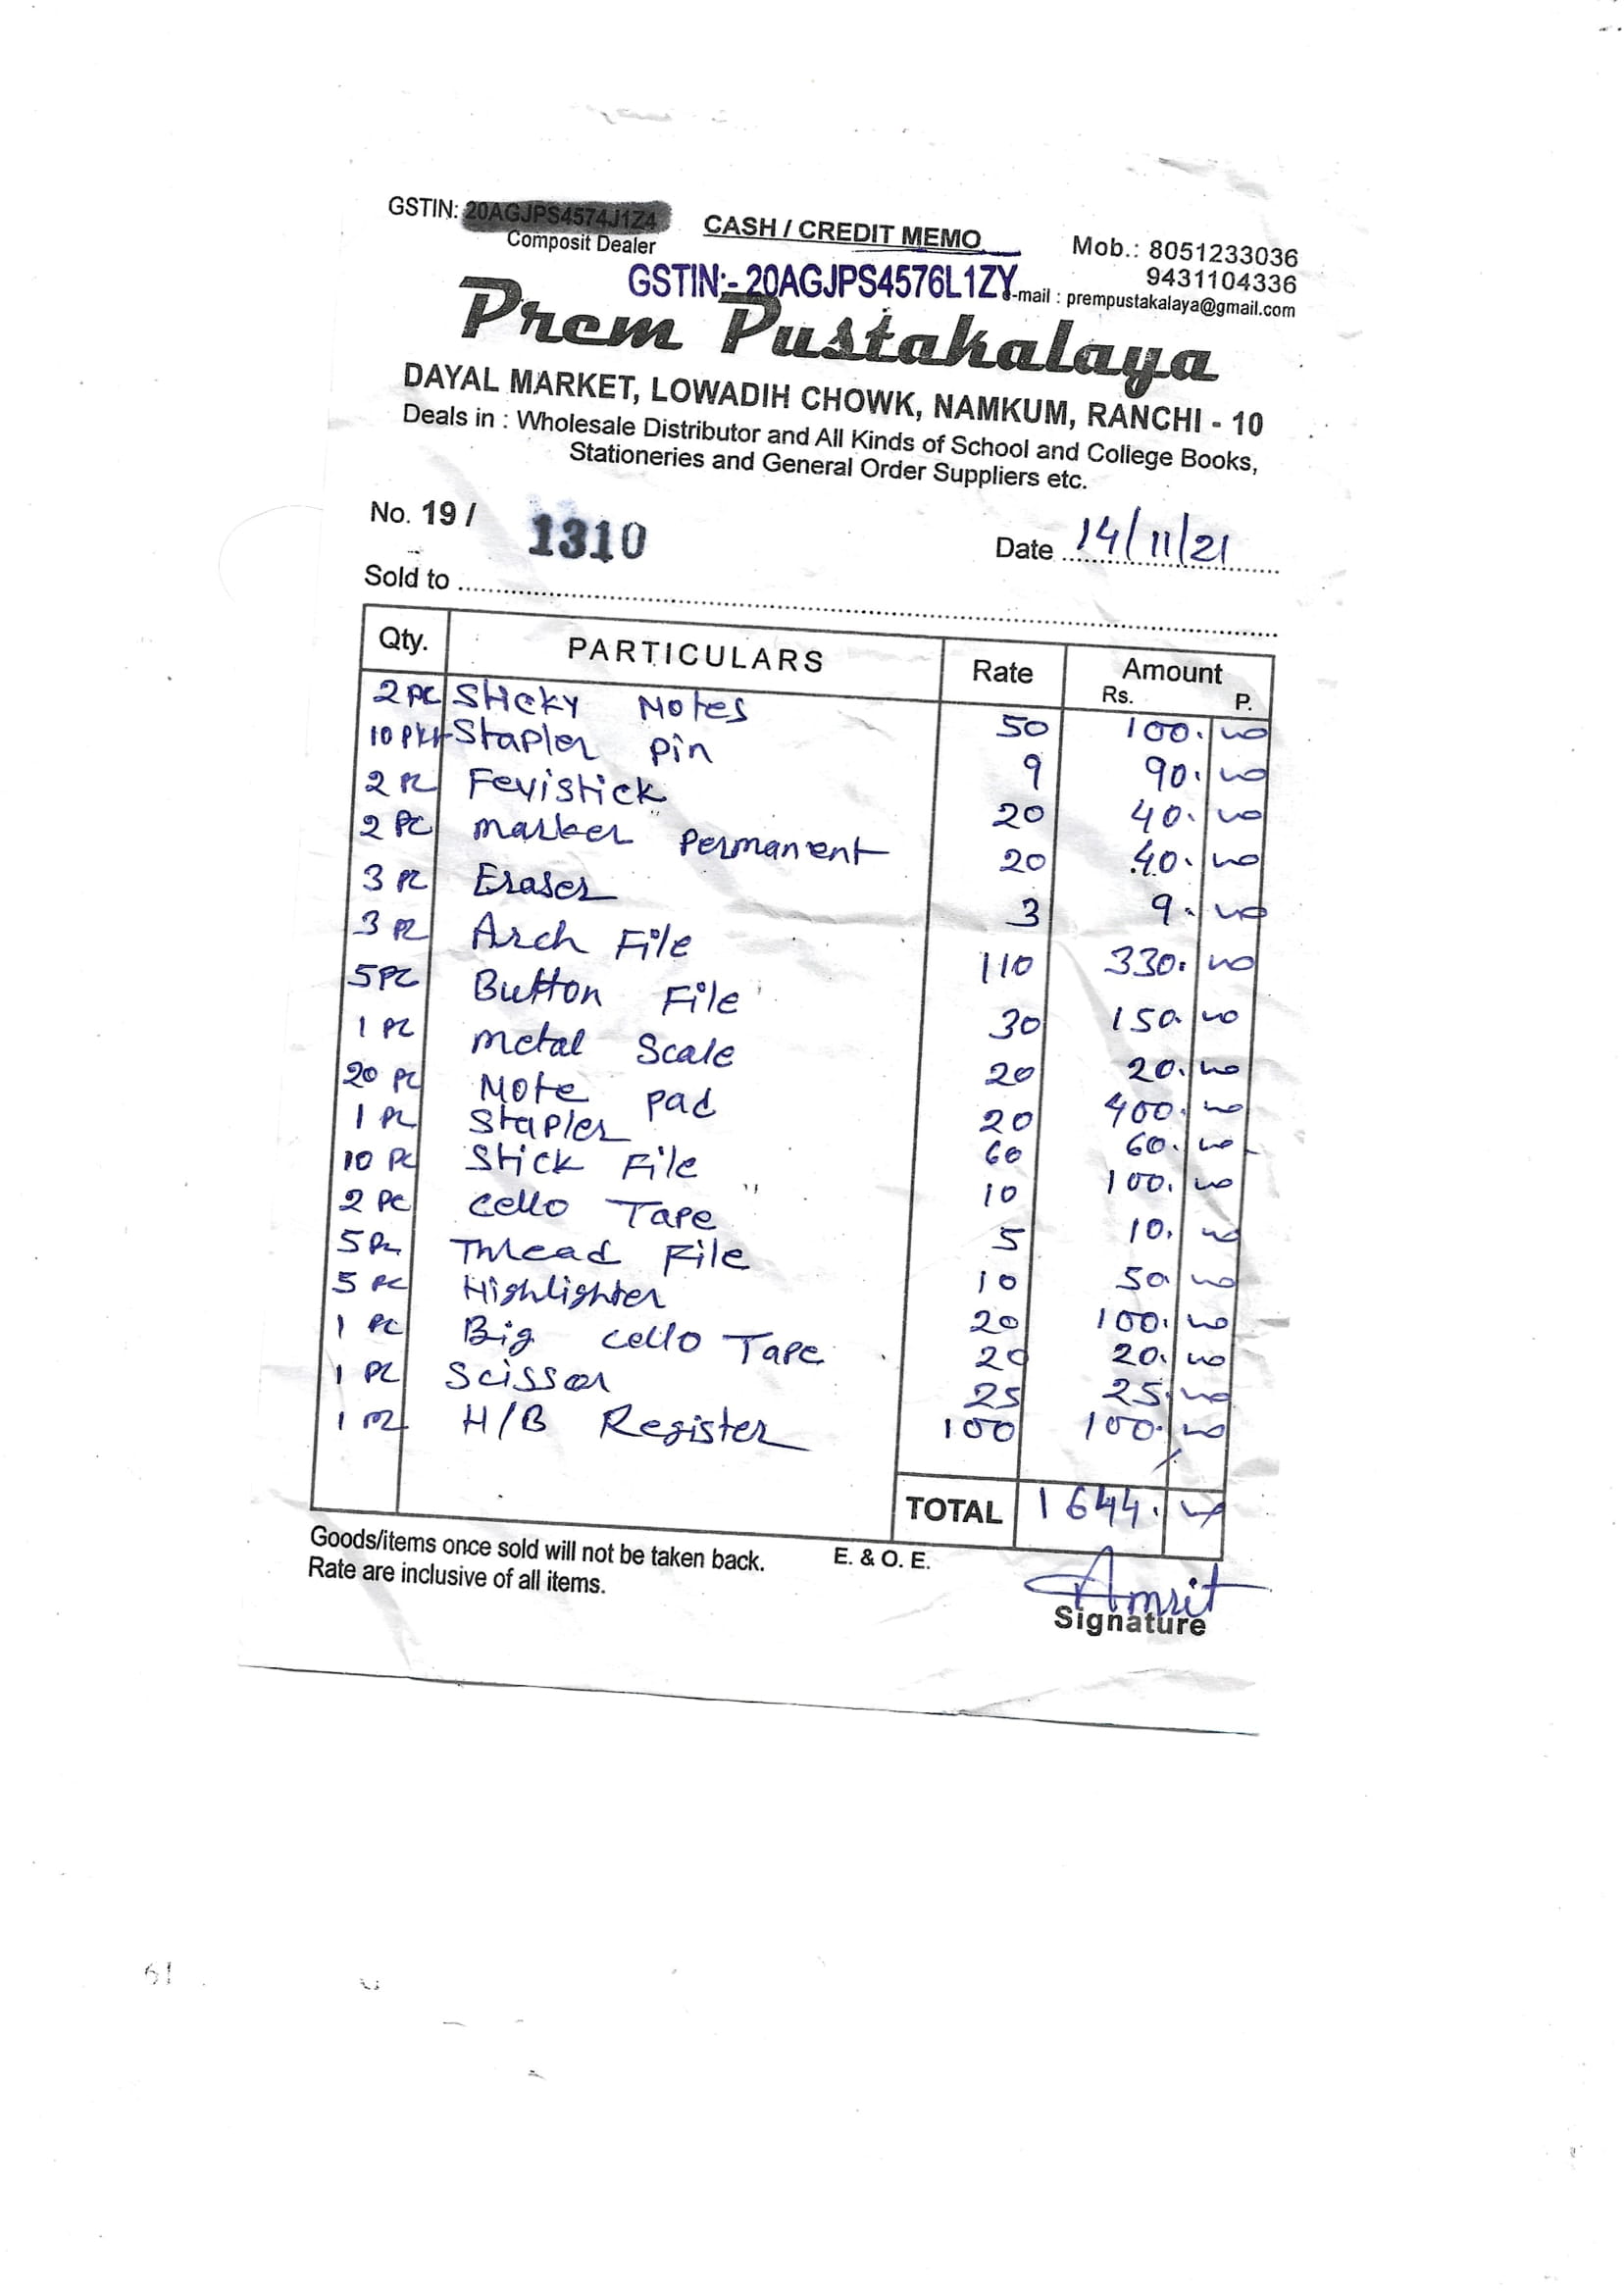 GSTIN: 20AGJPS4574J1Z4
Composit Dealer
CASH / CREDIT MEMO
Mob.: 8051233036
9431104336
GSTIN:- 20AGJPS4576L1ZY
-mail : prempustakalaya@gmail.com
Prem Pustakalaya
DAYAL MARKET, LOWADIH CHOWK, NAMKUM, RANCHI - 10
Deals in : Wholesale Distributor and All Kinds of School and College Books,
Stationeries and General Order Suppliers etc.
No. 19 / 1310 Date 14/11/21
Sold to
Qty. PARTICULARS Rate Amount
Rs. P.
2 PC Sticky Notes 50 100.00
10 Pkt Stapler Pin 9 90.00
2 PC Fevistick 20 40.00
2 PC Marker Permanent 20 40.00
3 PC Eraser 3 9.00
3 PC Arch File 110 330.00
5 PC Button File 30 150.00
1 PC Metal Scale 20 20.00
20 PC Note Pad 20 400.00
1 PC Stapler 60 60.00
10 PC Stick File 10 100.00
2 PC Cello Tape 5 10.00
5 PC Thread File 10 50.00
5 PC Highlighter 20 100.00
1 PC Big Cello Tape 20 20.00
1 PC Scissor 25 25.00
1 PC H/B Register 100 100.00
TOTAL 1644.00
Goods/items once sold will not be taken back. E. & O. E.
Rate are inclusive of all items.
Amrit
Signature